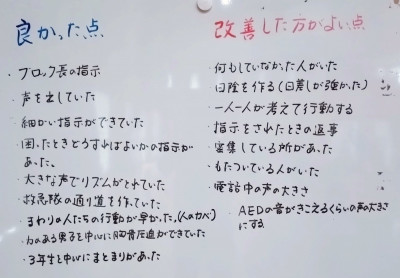 良かった点
・ブロック長の指示
・声を出していた
・細かい指示ができていた
・困ったときどうすればよいかの指示が
あった。
・大きな声でリズムがとれていた
・救急隊の通り道を作っていた
・まわりの人たちの行動が早かった。(人のカベ)
・力のある男子を中心に胸骨圧迫ができていた
・3年生を中心にまとまりがあった
改善した方がよい点
・何もしていなかった人がいた
・日陰を作る(日差しが強かった)
・一人一人が考えて行動する
・指示をされたときの返事
・密集している所があった
・もたついている人がいた
・電話中の声の大きさ
・AEDの音がきこえるくらいの声の大きさ
にする